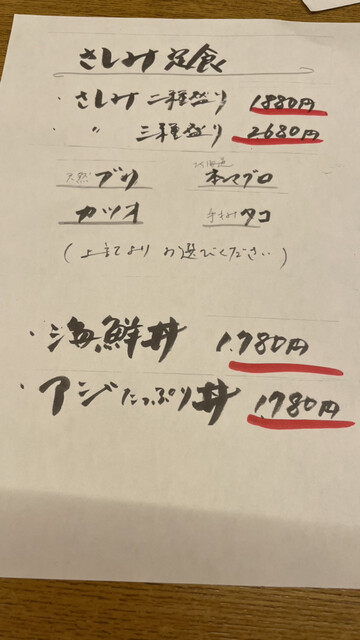 さしみ定食
・さしみ二種盛り 1880円
・〃 三種盛り 2680円
天然ブリ 本マグロ
カツオ タコ
(上記よりお選びください)
・海鮮丼 1,780円
・アジたっぷり丼 1,780円